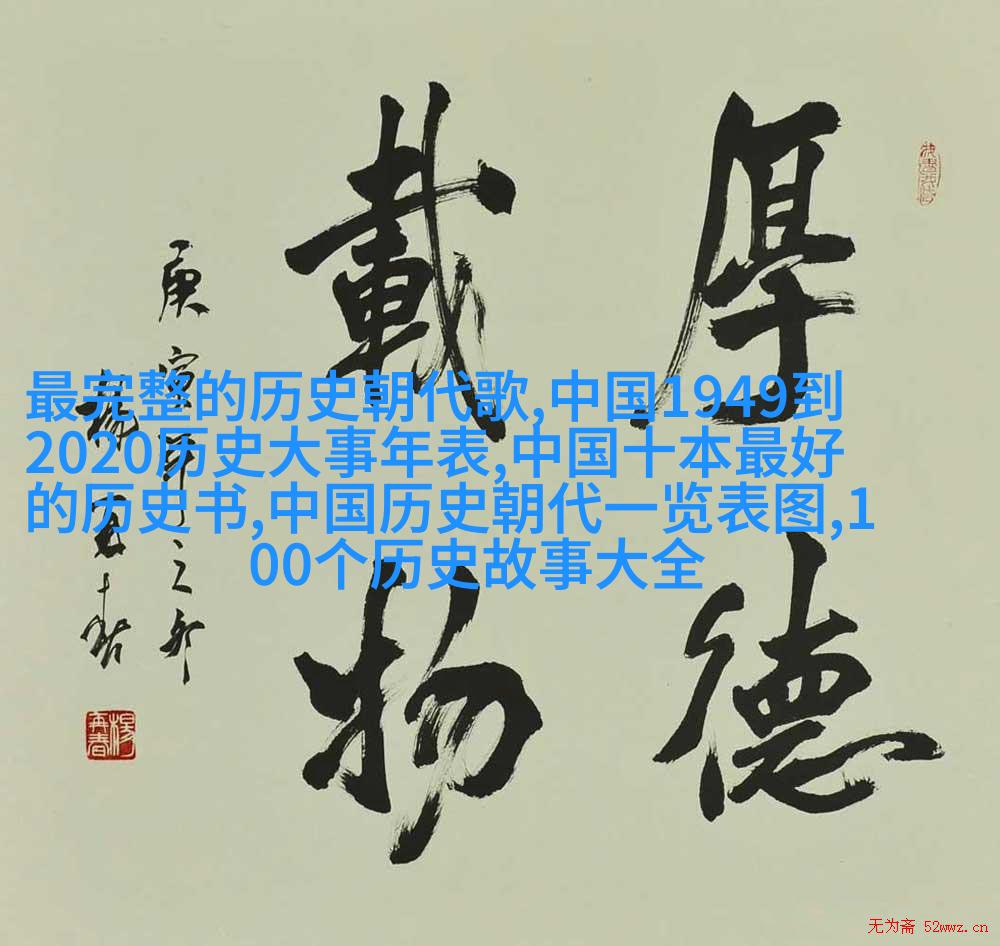 厚德
載物
庚寅年之
楊再春
楊再春
最完整的历史朝代歌,中国1949到
2020历史大事年表,中国十本最好
的历史书,中国历史朝代一览表图,1
00个历史故事大全
无为斋 52wwz.cn